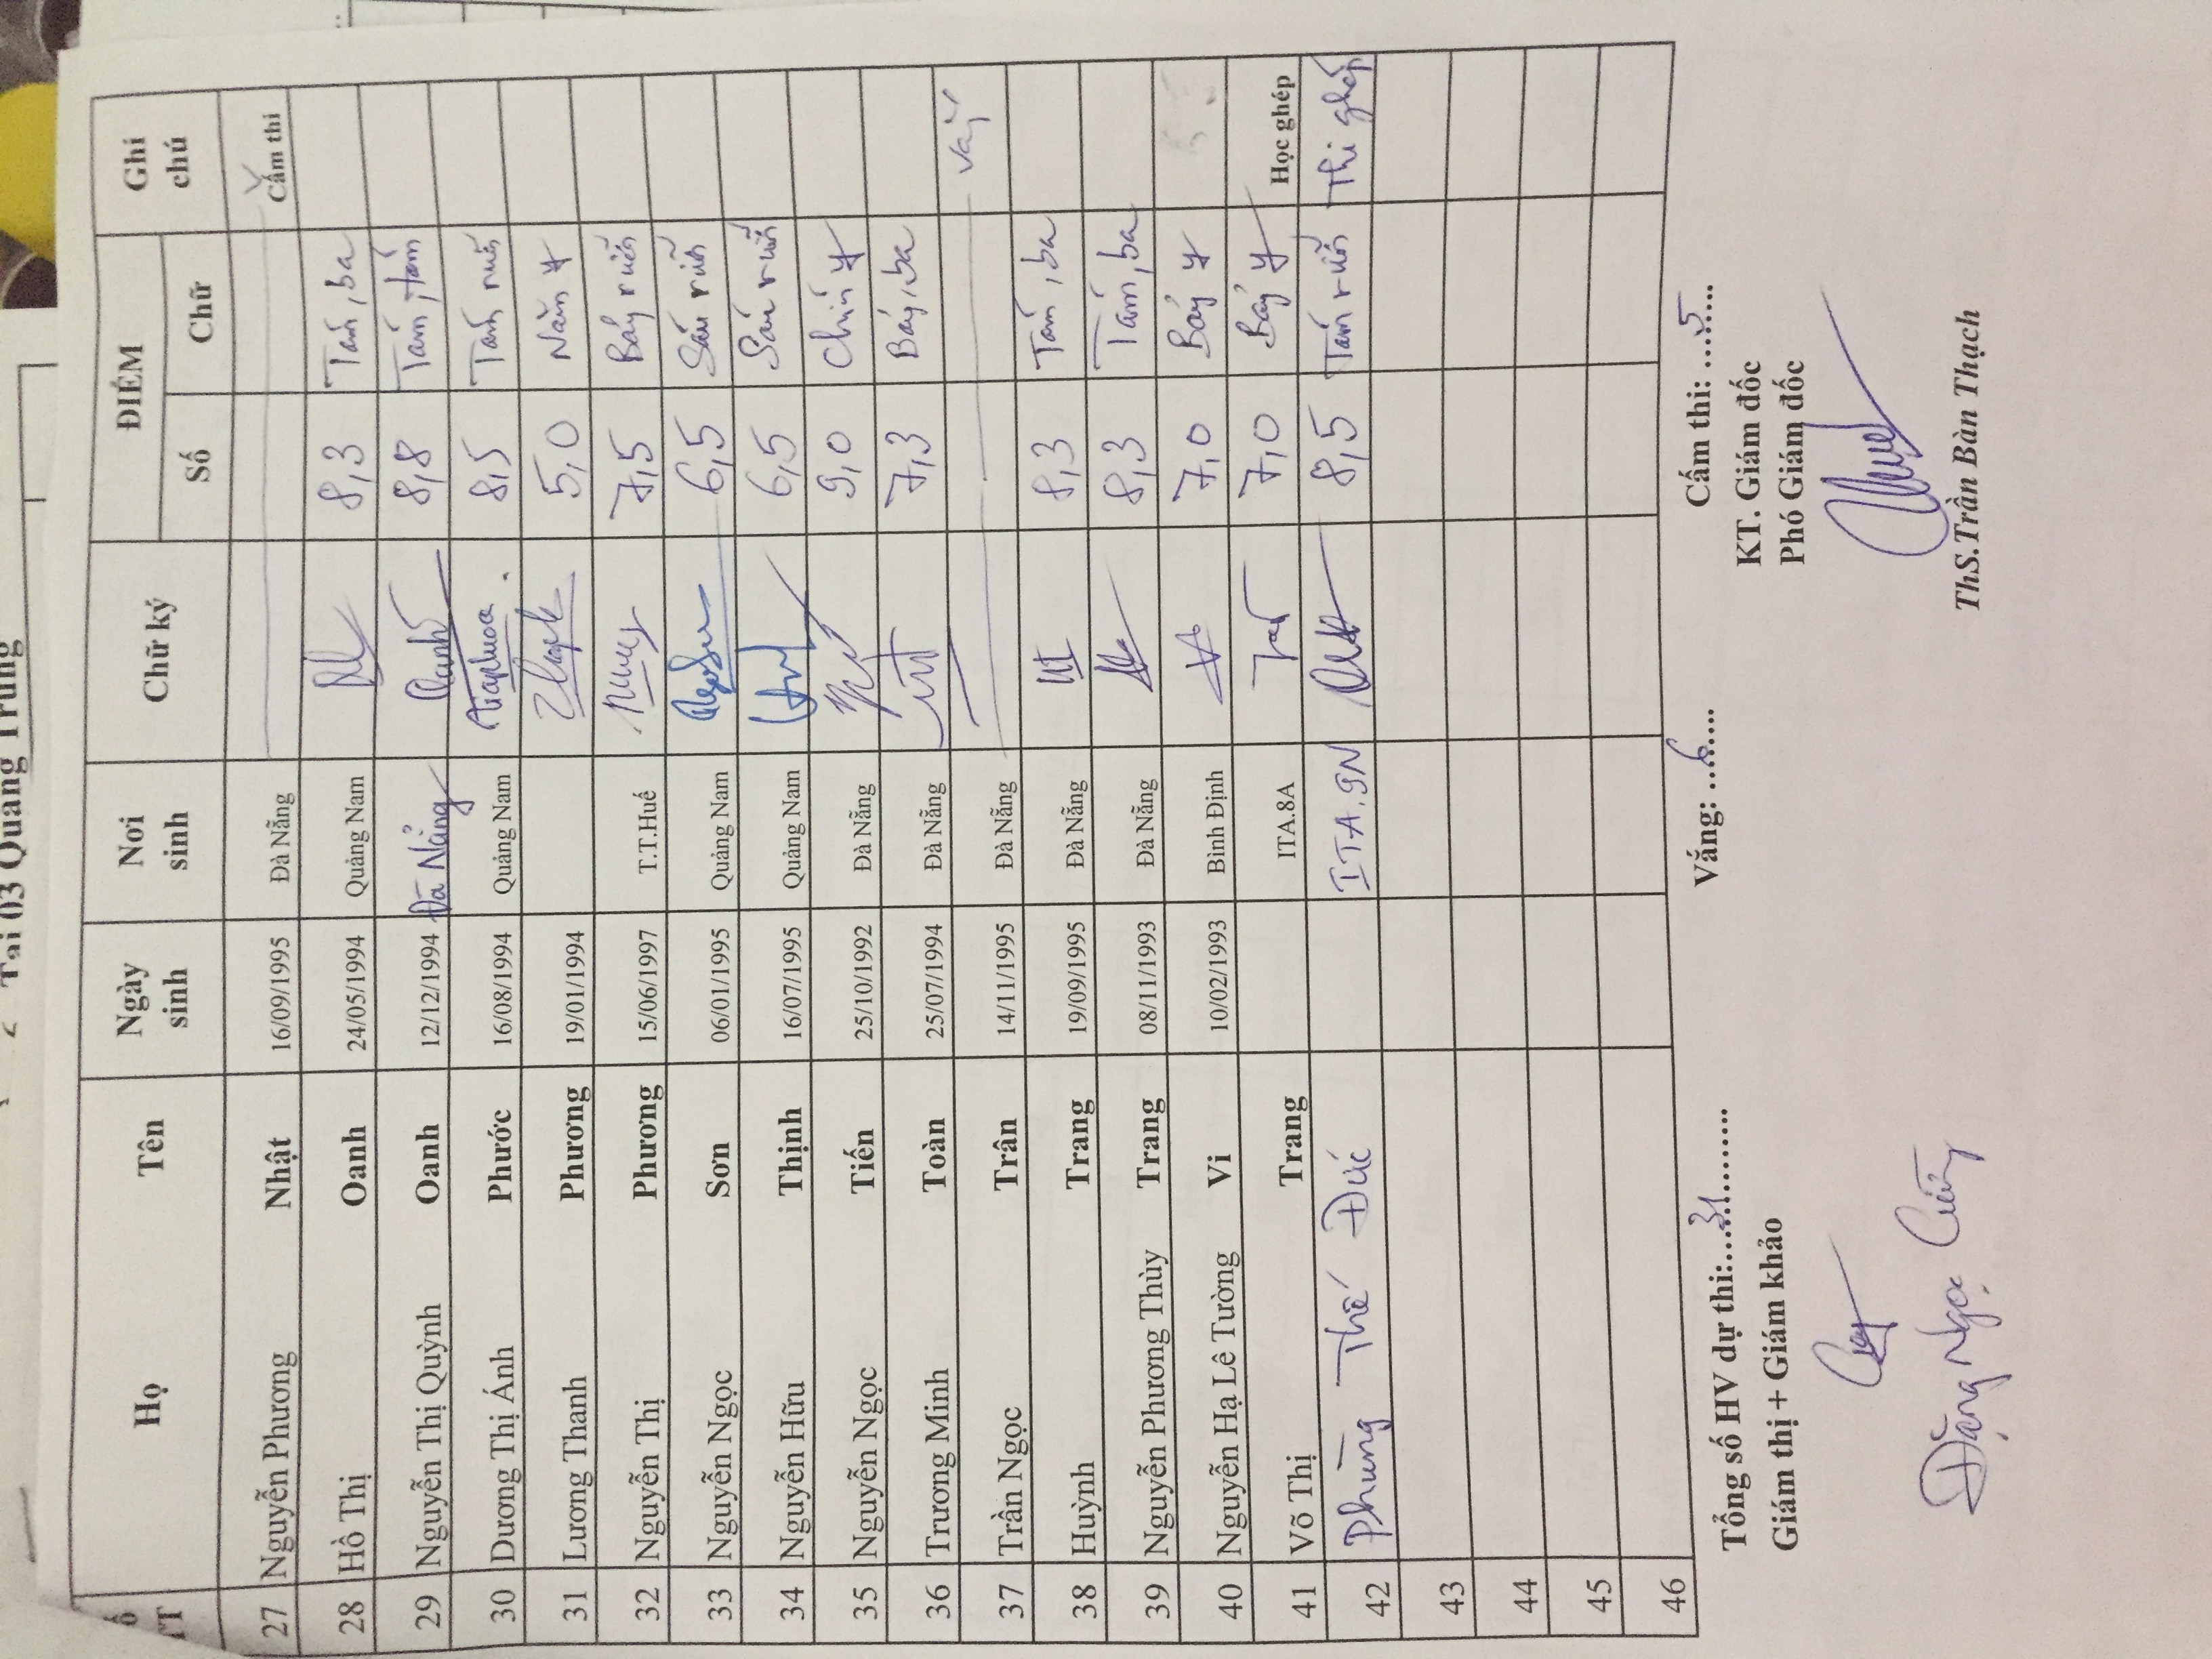 Tại 03 Quang Trung
Họ Tên Ngày sinh Nơi sinh Chữ ký ĐIỂM Ghi chú
Số Chữ
27 Nguyễn Phương Nhật 16/09/1995 Đà Nẵng Cấm thi
28 Hồ Thị Oanh 24/05/1994 Quảng Nam 8,3 Tám, ba
29 Nguyễn Thị Quỳnh Oanh 12/12/1994 Đà Nẵng Oanh 8,8 Tám, tám
30 Dương Thị Ánh Phước 16/08/1994 Quảng Nam 8,5 Tám rưỡi
31 Lương Thanh Phương 19/01/1994 5,0 Năm
32 Nguyễn Thị Phương 15/06/1997 T.T.Huế 7,5 Bảy rưỡi
33 Nguyễn Ngọc Sơn 06/01/1995 Quảng Nam 6,5 Sáu rưỡi
34 Nguyễn Hữu Thịnh 16/07/1995 Quảng Nam 6,5 Sáu rưỡi
35 Nguyễn Ngọc Tiến 25/10/1992 Đà Nẵng 9,0 Chín
36 Trương Minh Toàn 25/07/1994 Đà Nẵng 7,3 Bảy, ba
37 Trần Ngọc Trân 14/11/1995 Đà Nẵng Vắng
38 Huỳnh Trang 19/09/1995 Đà Nẵng 8,3 Tám, ba
39 Nguyễn Phương Thùy Trang 08/11/1993 Đà Nẵng 8,3 Tám, ba
40 Nguyễn Hạ Lê Tường Vi 10/02/1993 Bình Định 7,0 Bảy
41 Võ Thị Trang ITA.8A 7,0 Bảy Học ghép
42 Phùng Thế Đức ITA.9N 8,5 Tám rưỡi Thi ghép
43
44
45
46
Tổng số HV dự thi:....31........ Vắng: ...6..... Cấm thi: ....5....
Giám thị + Giám khảo KT. Giám đốc
Phó Giám đốc
Đặng Ngọc Cường ThS.Trần Bàn Thạch